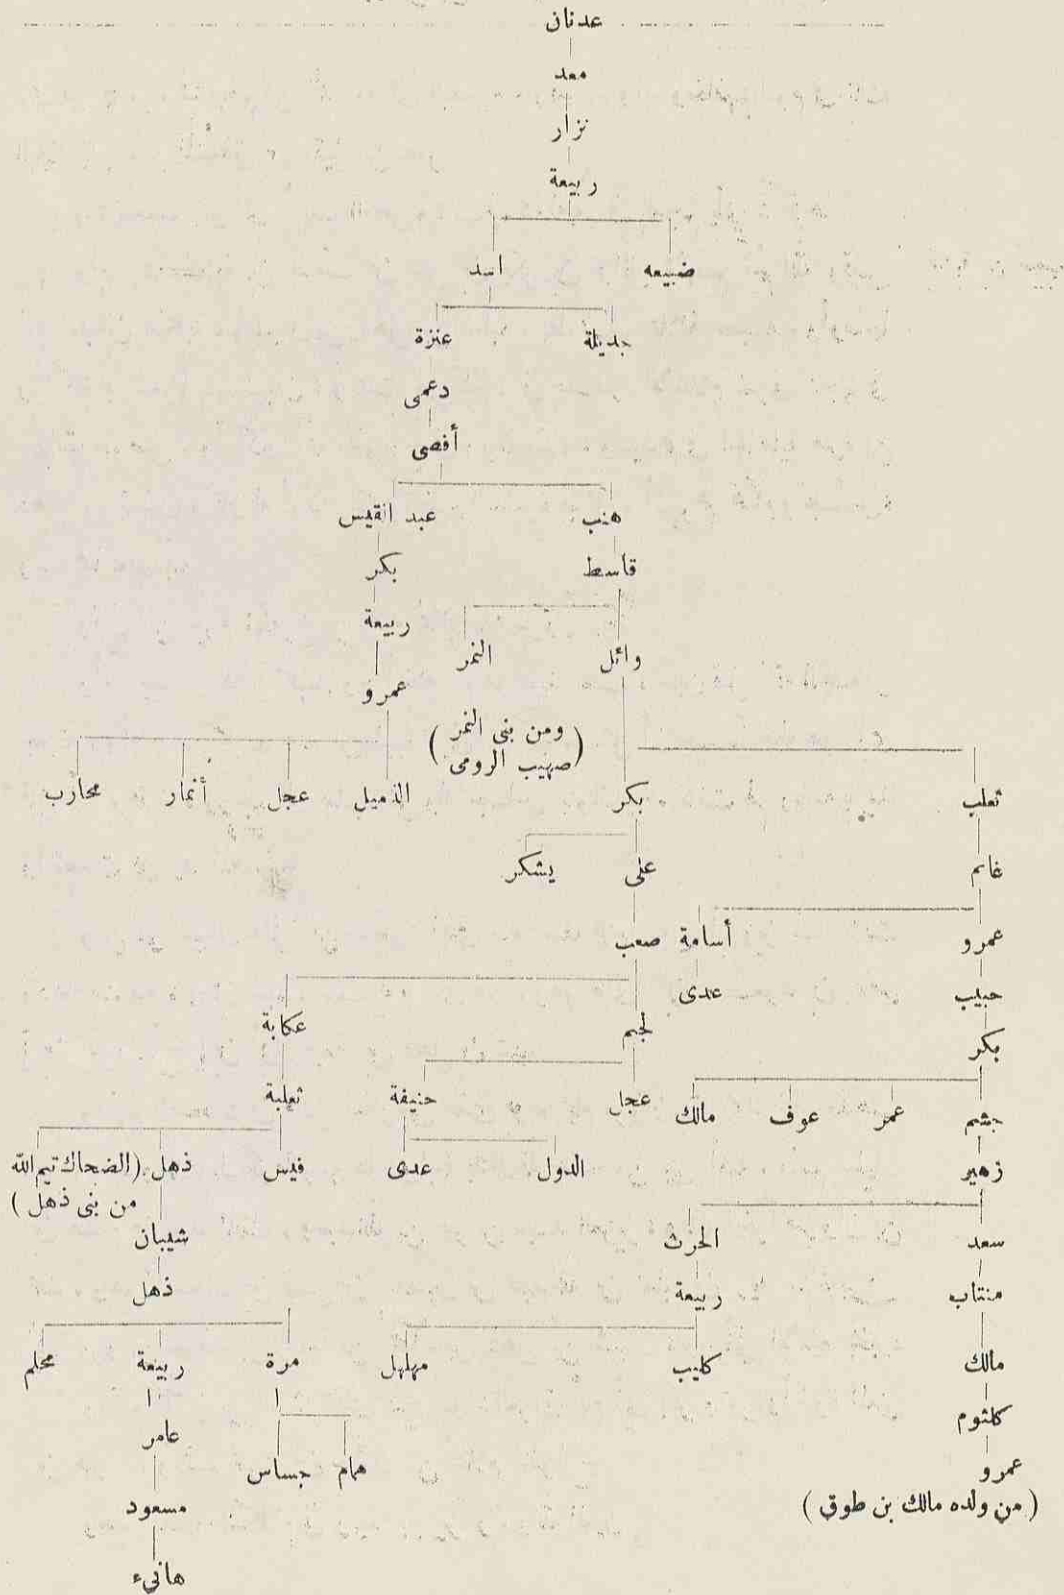 عدنان
معد
نزار
ربيعة
ضبيعه اسد
جديلة عنزة
دعمى
أفصى
هنب عبد القيس
قاسط بكر
ربيعة
وائل النمر
عمرو
(ومن بنى النمر
صهيب الرومى)
تعلب بكر الذميل عجل أنمار محارب
غانم على يشكر
عمرو أسامة صعب
حبيب عدى
لجيم عكابة
بكر
عجل حنيفة ثعلبة
جشم عمر عوف مالك
زهير الدول عدى قيس ذهل (الضحاك تيم الله
من بنى ذهل)
سعد الحرث شيبان
منتاب ربيعة ذهل
مالك كليب مهلهل مرة ربيعة محلم
كلثوم
عامر
عمرو همام جساس
(من ولده مالك بن طوق) مسعود
هانىء